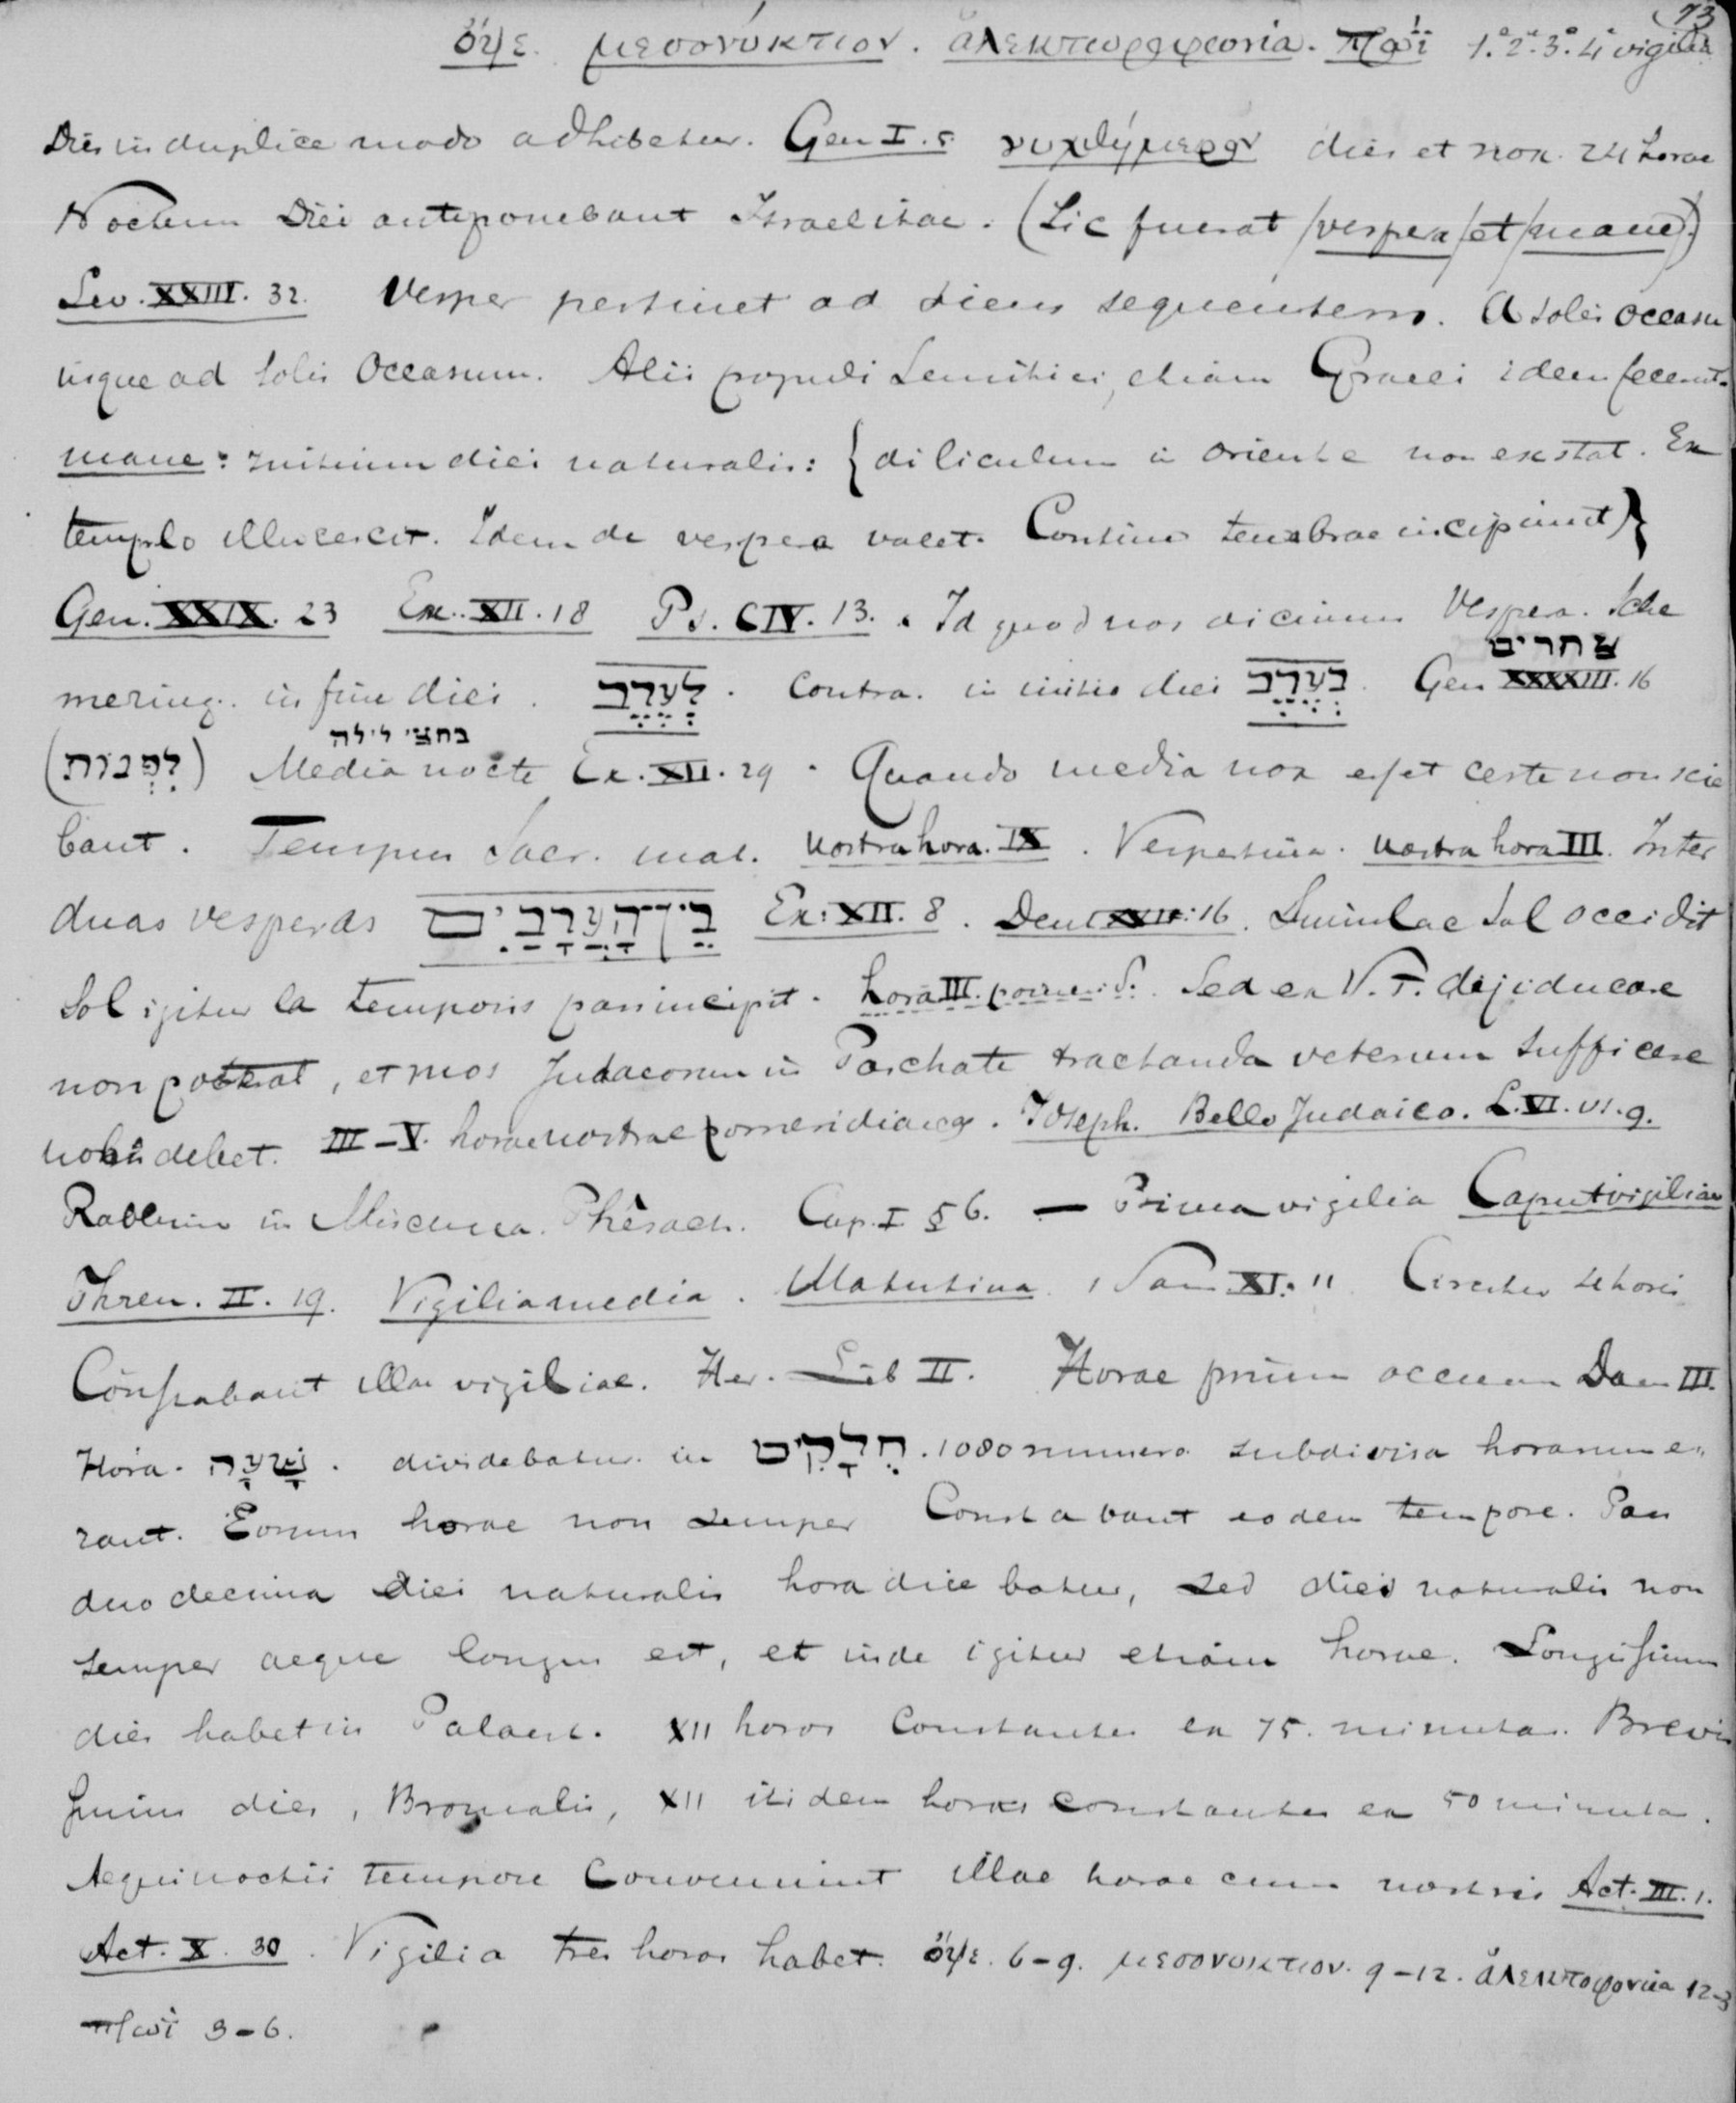 73
ὄψε. μεσονύκτιον. ἀλεκτωροφωνία. πρωΐ 1.° 2.° 3.° 4° vigilia
Dies in duplice modo adhibetur. Gen I. 5 νυχθήμερον dies et nox. 24 horae
Noctem Diei anteponebant Israelitae. (Sic fuerat /vespera/et/mane/.)
Lev. XXIII. 32. Vesper pertinet ad diem sequentem. A solis occasu
usque ad solis Occasum. Alii populi Semitici, etiam Graeci idem fecerunt.
mane: initium diei naturalis: {diliculum in oriente non exstat. Ex
templo illucescit. Idem de vespera valet. Continuo tenebrae incipiunt}
Gen. XXIX. 23 Ex. XII. 18 Ps. CIV. 13. Id quod nos dicimus Vespera. Sche
צחרים
mering. in fine diei. לָעֶרֶב. Contra. in initio diei בָּעֶרֶב. Gen XXXXIII. 16
בחצי לילה
(לִפְנוֹת) Media nocte Ex. XII. 29. Quando media nox esset certe non scie
bant. Tempus Sacr. mat. nostra hora. IX. Vespertina. nostra hora III. Inter
duas vesperas בֵּין הָעַרְבַּיִם Ex: XII. 8. Deut XVI: 16. Simulac Sol occidit
Sol igitur ea temporis pars incipit. hora III. pomerid. Sed ex V.T. dijiducare
non poterat, et mos Judaeorum in Paschate tractanda veterum sufficere
nobis debet. III-V. horae nostrae pomeridianae. Joseph. Bello Judaico. L. VI. VI. 9.
Rabbini in Mischna. Phesach. Cap. I § 6. — Prima vigilia Caput vigiliae
Thren. II. 19. Vigilia media. Matutina 1 Sam XI. 11 Circiter 4 horis
Constabant illae vigiliae. Her. Lib II. Horae primum occurrunt Dan III.
Hora. שָׁעָה. dividebatur in חֲלָקִים. 1080 numero subdivisa horarum e-
rant. Eorum horae non semper Constabant eodem tempore. Pars
duodecima diei naturalis hora dicebatur, sed dies naturalis non
semper aeque longus est, et inde igitur etiam horae. Longissimus
dies habet in Palaest. XII horas Constantes ex 75. minutas. Brevis
simus dies, Bromalis, XII itidem horas constantes ex 50 minuta.
Aequinoctii tempore Conveniunt illae horae cum nostris Act. III. 1.
Act. X. 30. Vigilia tres horas habet. ὄψε. 6-9. μεσονυκτιον. 9-12. ἀλεκτοφονία 12-3
πρωΐ 3-6.